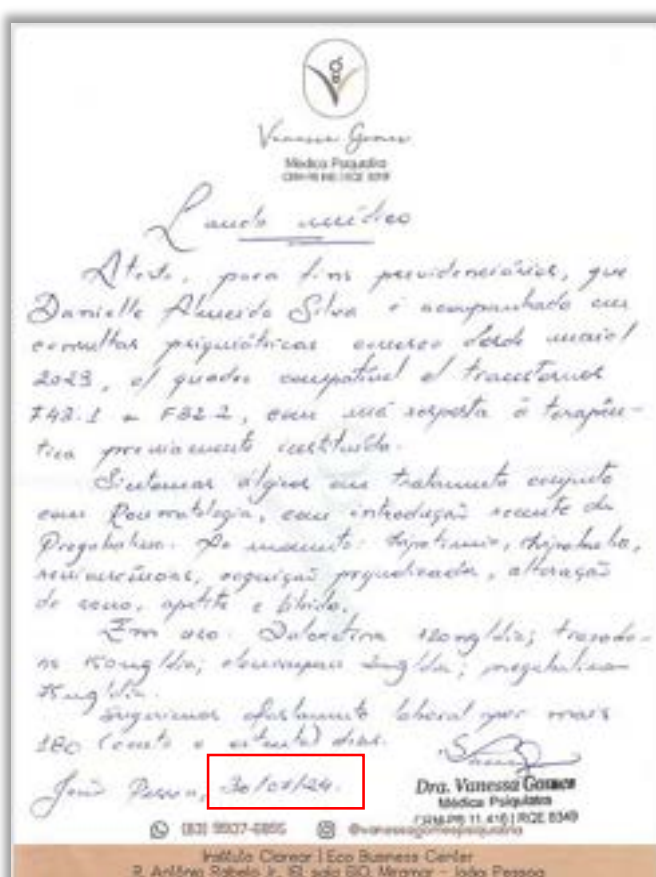 Vanessa Gomes
Médica Psiquiatra
Laudo médico
Atesto, para fins previdenciários, que
Danielle Almeida Silva é acompanhada em
consultas psiquiátricas comigo desde maio/
2023, c/ quadro compatível c/ transtornos
F43.1 e F32.2, com má resposta à terapêu-
tica previamente instituída.
Sintomas álgicos em tratamento conjunto
com Reumatologia, com introdução recente de
Pregabalina. Ao momento: hipotimia, hipobulia,
cognição prejudicada, alteração
de sono, apetite e libido.
Em uso: Duloxetina 120mg/dia; trazodo-
na 150mg/dia; clonazepam 2mg/dia; pregabalina
75mg/dia.
Sugerimos afastamento laboral por mais
180 (cento e oitenta) dias.
João Pessoa, 30/07/24.
Dra. Vanessa Gomes
Médica Psiquiatra
CRM-PB 11.416 | RQE 8349
(83) 9937-6895 @vanessagomespsiquiatria
Instituto Clarear | Eco Business Center
R. Antônio Rabelo Jr, 161, sala 810, Miramar - João Pessoa